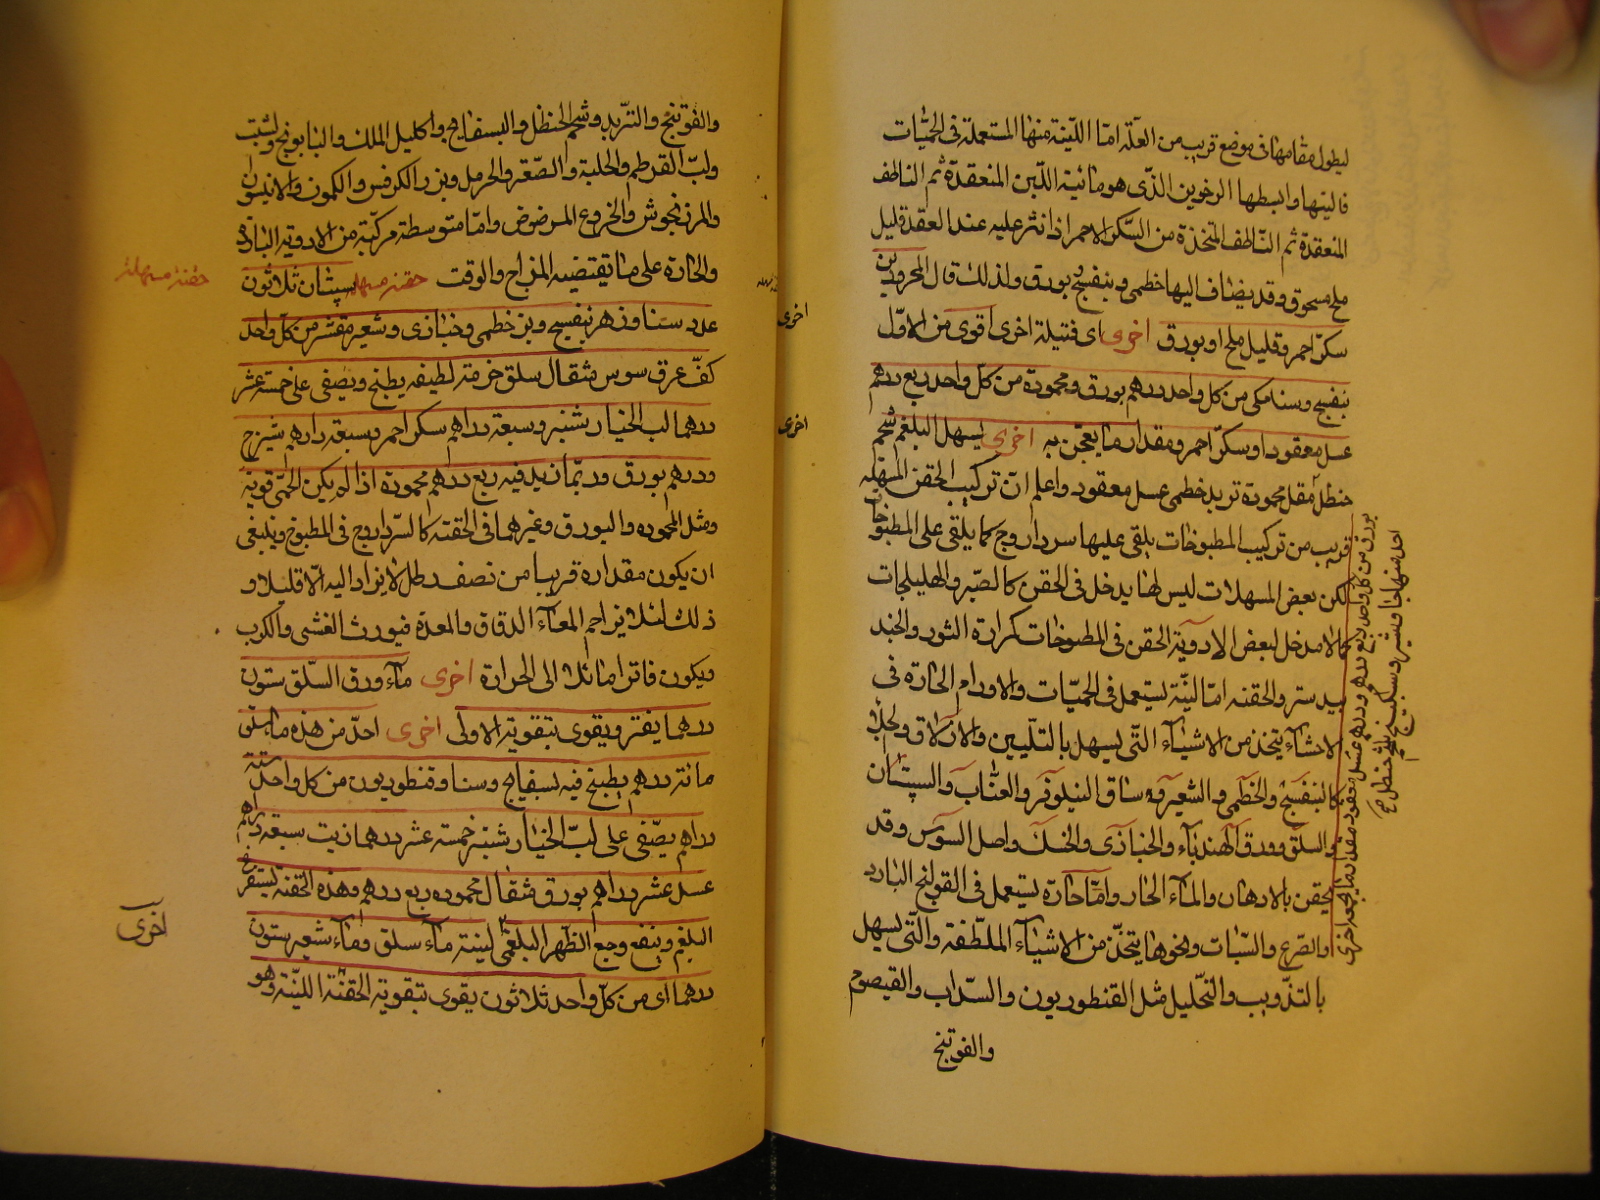 ليطول مقامها فى موضع قريب من العلّة امّا الليّنة منها المستعملة فى الحمّيات
فالينها وابسطها الرخوين الذّى هو مائية التين المنعقدة ثم الناطف
المنعقدة ثم الناطف المتخذة من السّكر الاحمر اذا نثر عليه عند العقد قليل
ملح مسحوق وقد يضاف اليها خطمى وبنفسج وبورق ولذلك قال المحرورين
سكّر احمر وقليل ملح او بورق اخرى اى فتيلة اخرى اقوى من الاوّل
بنفسج وسنا مكى من كل واحد درهم بورق ومحمودة من كلّ واحد ربع درهم
عسل معقود او سكّر احمر ومقدار ما يعجن به اخرى يسهل البلغم شحم
حنظل مقل محمودة تربد خطمى عسل معقود واعلم انّ تركيب الحقن المسهّله
قريب من تركيب المطبوخات يلقى عليها سردار وج كما يلقى على المطبوخات
لكن بعض المسهلات ليس لها يدخل فى الحقن كالصّبر والهليلجات
كما لا مدخل لبعض الادوية الحقن فى المطبوخات كمرارة الثور والجند
بيدستر والحقنه امّا لينّة يستعمل فى الحميّات والاورام الحارّة فى
الاحشآء يتخذ من الاشيآء التّى يسهل بالتّليين والازلاق والجلآء
كالبنفسج والخطمى والشعير وساق النيلوفر والعنّاب والسپستان
والسلق وورق الهندبآء والخبّازى والخسك واصل السوس وقد
يحقن بالادهان والمآء الحار وامّا حارّه يستعمل فى القولنج البارد
والصّرع والسّبات ونحوها يتخذ من الاشيآء الملطّفة والتّى يسهل
بالتذويب والتّحليل مثل القنطوريون والسّداب والقيصوم
والفوتنج
بورق من كل واحد ربع درهم ودرهم عسل معقود مقدار ما يجمعه اخرى
اخرى
اخرى
والفوتنج والتّربد وشحم الحنظل والبسفايج واكليل الملك والبابونج والشبت
ولبّ القرطم والحلبة والصّعتر والحرمل وبزر الكرفس والكمون والانيسون
والمرزنجوش والخروع المرضوض وامّا متوسطة مركّبة من الادوية الباردة
والحارّة على ما يقتضيه المزاج والوقت حقنه مسهله سپستان ثلاثون
عدد سنا وزهر بنفسج وبزر خطمى وخبّازى وشعير مقشر من كلّ واحد
كفّ عرق سوس مثقال سلق حزمة لطيفه يطبخ ويصفى على خمسة عشر
درهما لب الخيار شنبر وسبعة دراهم سكر احمر وسبعة دراهم شيرج
ودرهم بورق وربّما زيد فيه ربع درهم محمودة اذا لم يكن الحمّى قوية
ومثل المحموده والبورق وغيرهما فى الحقنة كالسّردار وج فى المطبوخ وينبغى
ان يكون مقداره قريبا من نصف رطل لا يزاد اليه الّا قليلا و
ذلك لئلا يزاحم المعآء الدقاق والمعدة فيورث الغشى والكرب
ويكون فاترا مائلا الى الحرارة اخرى مآء ورق السّلق ستون
درهما يفتر ويقوى بتقوية الاولى اخرى احدّ من هذه ماء سلق
مائة درهم يطبخ فيه بسفايج وسنا وقنطوريون من كل واحد ستّة
دراهم يصّفى على لبّ الخيار شنبر خمسة عشر درهما زيت سبعة دراهم
عسل عشر دراهم بورق مثقال محموده ربع درهم وهذه الحقنه يستفرغ
البلغم وينفع وجع الظّهر البلغمى لينة مآء سلق ومآء شعير ستون
درهما اى من كلّ واحد ثلاثون يقوى بتقوية الحقنة اللينّة وهو
حقنه مسهله
اخرى